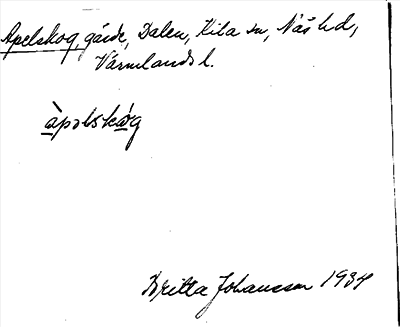 Apelskog, gärde, Dalen, Kila sn, Näs hd,
Värmlands l.
àpəlskòg
Britta Johansson 1934